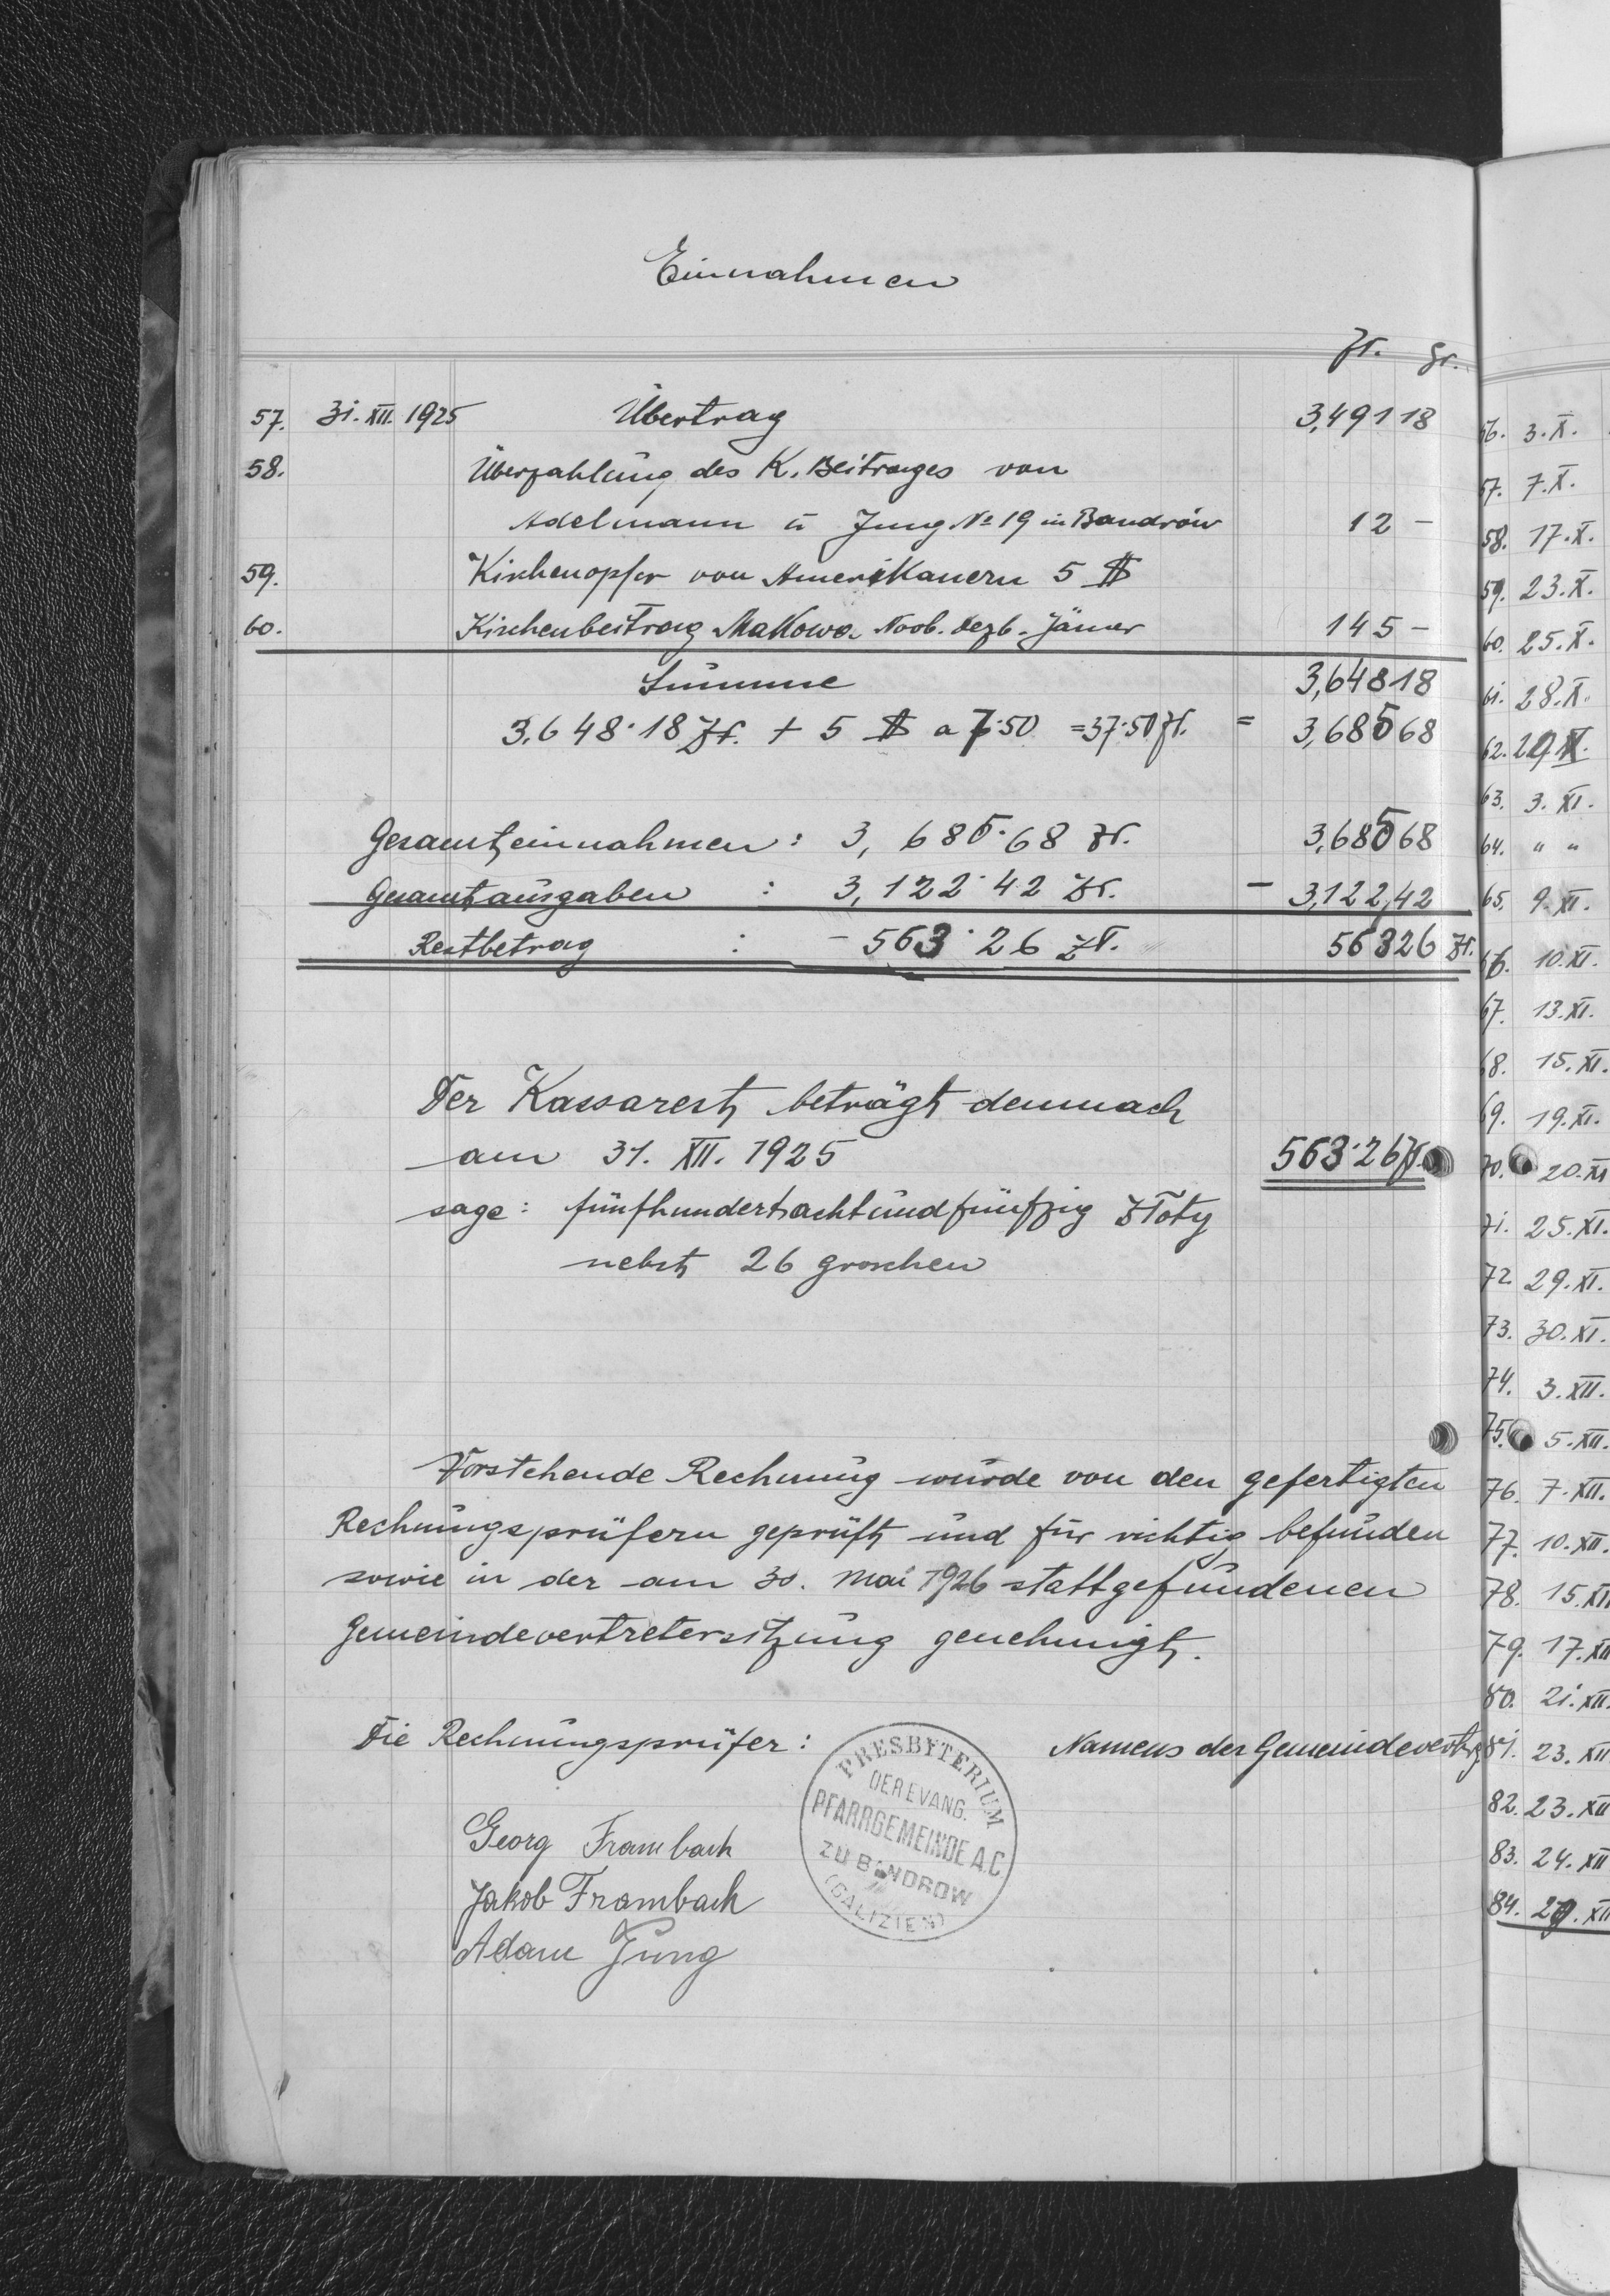 Einnahmen
Zł. Gr.
57. 31. XII. 1925 Übertrag 3,491 18
58. Überzahlung des K. Beitrages von
Adelmann u Jung No 19 in Bandrów 12 -
59. Kirchenopfer von Amerikanern 5 $
60. Kirchenbeitrag Makowa Novb. Dezb. Jänner 145 -
Summe 3,648 18
3.648·18 Zł. + 5 $ a 7·50 = 37·50 Zł. = 3,685 68
Gesamteinnahmen : 3,685·68 Zł. 3,685 68
Gesamtausgaben : 3,122·42 Zł. - 3,122,42
Restbetrag : - 563·26 Zł. 563 26 Zł.
Der Kassarest beträgt demnach
am 31. XII. 1925 563·26 Zł.
sage: fünfhundertachtundfünfzig Złoty
nebst 26 Groschen
Vorstehende Rechnung wurde von den gefertigten
Rechnungsprüfern geprüft und für richtig befunden
sowie in der am 30. Mai 1926 stattgefundenen
Gemeindevertretersitzung genehmigt.
Die Rechnungsprüfer: Namens der Gemeindevertrg
PRESBYTERIUM
DER EVANG.
PFARRGEMEINDE A.C.
ZU BANDROW
(GALIZIEN)
Georg Frambach
Jakob Frambach
Adam Jung
56. 3. X.
57. 7. X.
58. 17. X.
59. 23. X.
60. 25. X.
61. 28. X.
62. 29 X.
63. 3. XI.
64. " "
65. 9. XI.
66. 10. XI.
67. 13. XI.
68. 15. XI.
69. 19. XI.
70. 20. XI
71. 25. XI.
72. 29. XI.
73. 30. XI.
74. 3. XII.
75. 5. XII.
76. 7. XII.
77. 10. XII.
78. 15. XII
79. 17. XII
80. 21. XII.
81. 23. XII
82. 23. XII
83. 24. XII
84. 29. XII